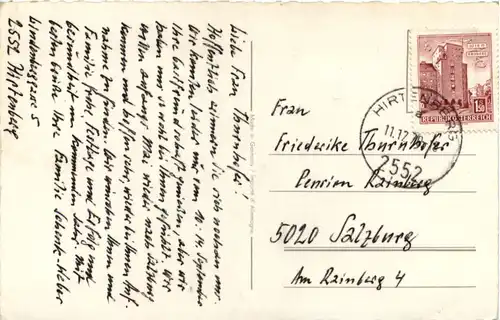 Liebe Frau Thurnhofer!
Hoffentlich erinnern Sie sich noch an uns.
Wir konnten leider nur vom 10.-14. September
Ihre Gastfreundschaft genießen, aber wir
haben uns so wohl bei Ihnen gefühlt. Wir
wollen anfangs 1972 wieder nach Salzburg
kommen und hoffen sehr, wieder bei Ihnen Auf-
nahme zu finden. Wir wünschen Ihnen und
Familie frohe Festtage und Erfolg und
Gesundheit im kommenden Jahr! Mit
besten Grüßen Ihre Familie Schenk-Weber
5
2552 Hirtenberg
REPUBLIK ÖSTERREICH
1.50
HIRTENBERG
2552
Frau
Friederike Thurnhofer
Pension Rainberg
5020 Salzburg
Am Rainberg 4